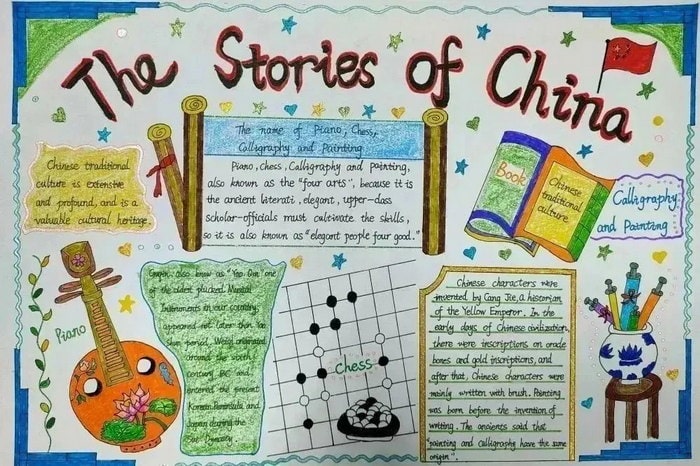 The Stories of China
Chinese traditional
culture is extensive
and profound, and is a
valuable cultural heritage.
The name of Piano, Chess,
Calligraphy and Painting
Piano, chess, Calligraphy and painting,
also known as the "four arts", because it is
the ancient literati, elegant, upper-class
scholar-officials must cultivate the skills,
so it is also known as "elegant people four good."
Book
Chinese
traditional
culture
Calligraphy
and Painting
Piano
also know as "Yao Qin" one
of the oldest plucked Musical
Instruments in our country,
appeared not later than Yao
Shun period, Weiqi originated
around the sixth
century BC and
entered the present
Korean Peninsula and
Japan during the
Sui Dynasty
Chess
Chinese characters were
invented by Cang Jie, a historian
of the Yellow Emperor. In the
early days of Chinese civilization,
there were inscriptions on oracle
bones and gold inscriptions, and
after that, Chinese characters were
mainly written with brush. Painting
was born before the invention of
writing. The ancients said that
"painting and calligraphy have the same
origin".